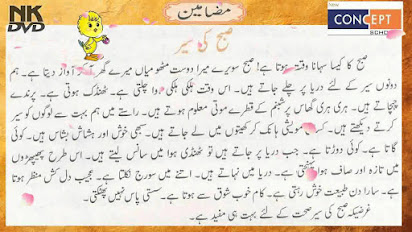 NK
DVD
مضامین
New
CONCEPT
SCHOOL
صبح کی سیر
صبح کا کیسا سہانا وقت ہوتا ہے! صبح سویرے میرا دوست مٹھو میاں میرے گھر آ کر آواز دیتا ہے۔ ہم
دونوں سیر کے لئے دریا پر چلے جاتے ہیں۔ اس وقت ہلکی ہلکی ہوا چلتی ہے۔ ٹھنڈک ہوتی ہے۔ پرندے
چہچہاتے ہیں۔ ہری ہری گھاس پر شبنم کے قطرے موتی معلوم ہوتے ہیں۔ راستے میں ہم بہت سے لوگوں کو سیر
کرتے دیکھتے ہیں۔ مویشی ہانک کر کھیتوں میں لے جاتے ہیں۔ سبھی خوش اور ہشاش بشاش ہیں۔ کوئی
گاتا ہے۔ کوئی دوڑتا ہے۔ جب دریا پر جاتے ہیں تو ٹھنڈی ہوا میں سانس لیتے ہیں۔ اس طرح پھیپھڑوں
میں تازہ اور صاف ہوا پہنچتی ہے۔ دریا میں نہاتے ہیں۔ اتنے میں سورج نکلتا ہے۔ عجیب دل کش منظر ہوتا
ہے۔ سارا دن طبیعت خوش رہتی ہے۔ کام خوب شوق سے ہوتا ہے۔ سستی پاس نہیں پھٹکتی۔
غرضیکہ صبح کی سیر صحت کے لئے بہت ہی مفید ہے۔